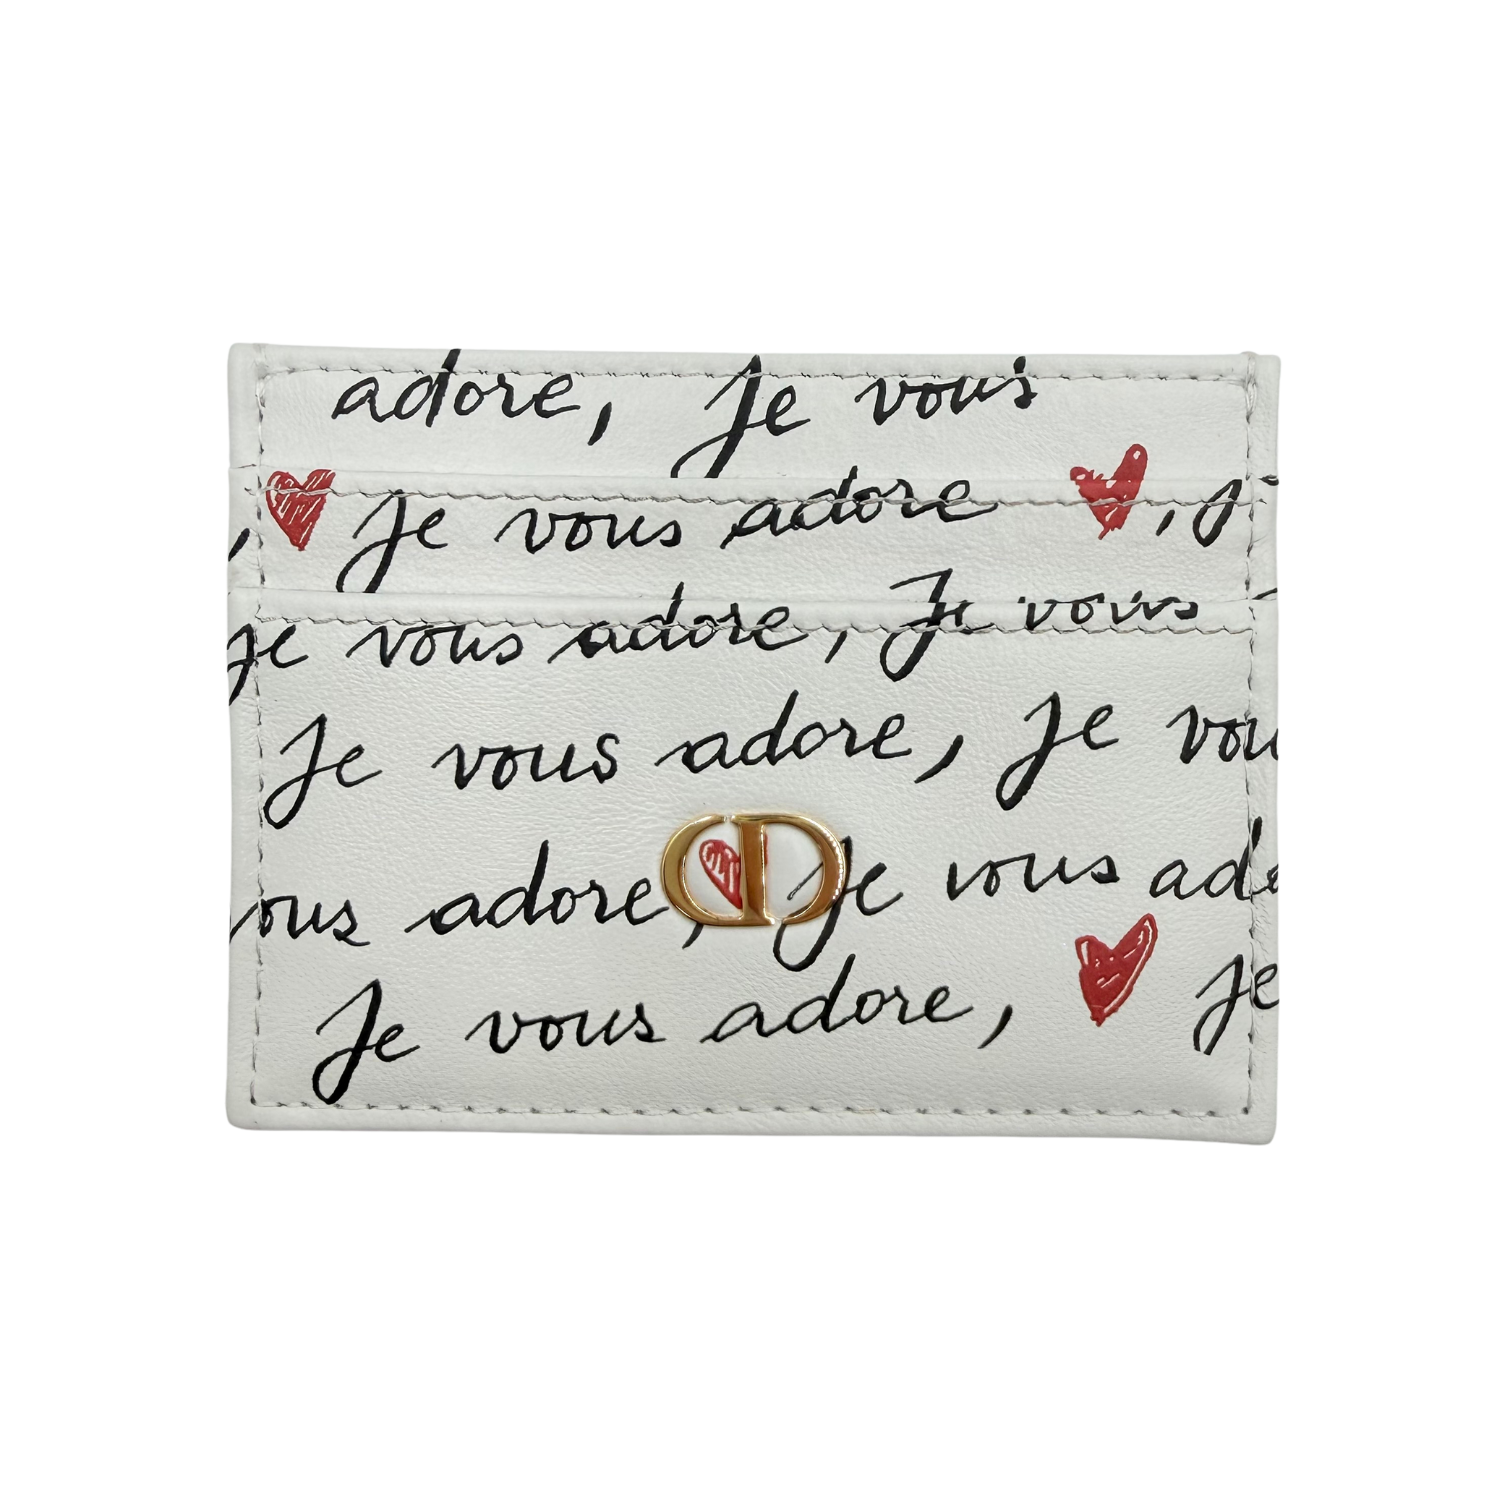 adore, Je vous
, Je vous adore , J
Je vous adore, Je vous
Je vous adore, Je vou
ous adore, Je vous ado
Je vous adore, Je
CD